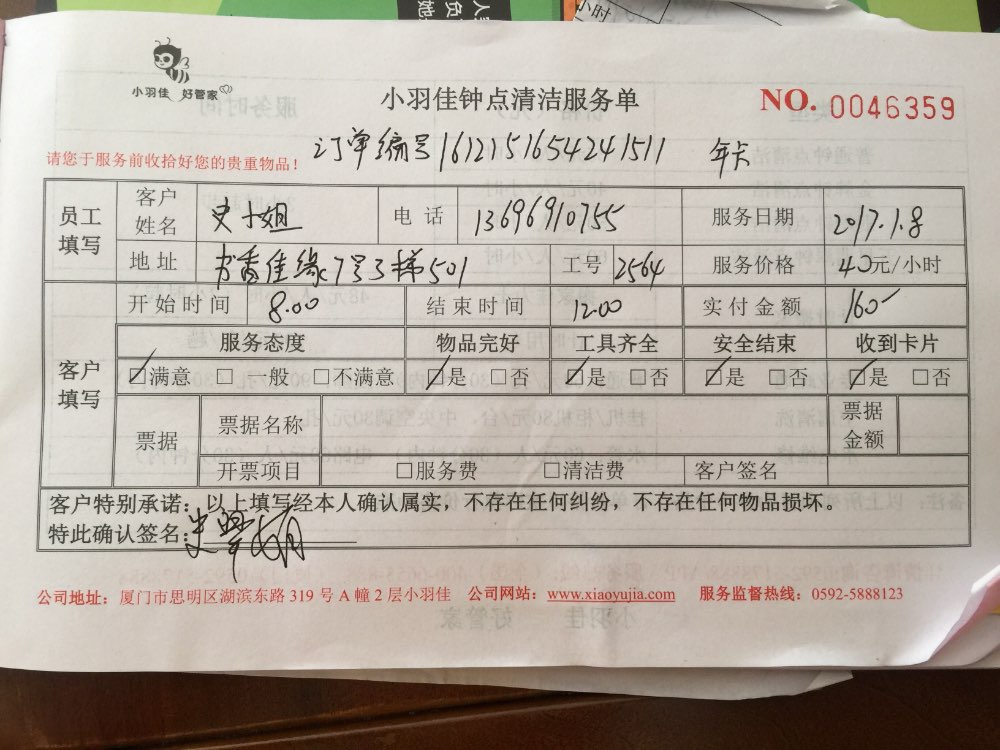 小羽佳 好管家
小羽佳钟点清洁服务单
NO. 0046359
订单编号 1612151654241511 年卡
请您于服务前收拾好您的贵重物品！
员工填写 客户姓名 史小姐 电话 13696910755 服务日期 2017.1.8
地址 书香佳缘c7号3梯501 工号 2564 服务价格 40元/小时
客户填写 开始时间 8:00 结束时间 12:00 实付金额 160
服务态度 物品完好 工具齐全 安全结束 收到卡片
☑满意 □一般 □不满意 ☑是 □否 ☑是 □否 ☑是 □否 ☑是 □否
票据 票据名称 票据金额
开票项目 □服务费 □清洁费 客户签名
客户特别承诺：以上填写经本人确认属实，不存在任何纠纷，不存在任何物品损坏。
特此确认签名：史翠
公司地址：厦门市思明区湖滨东路 319 号 A 幢 2 层小羽佳 公司网站：www.xiaoyujia.com 服务监督热线：0592-5888123